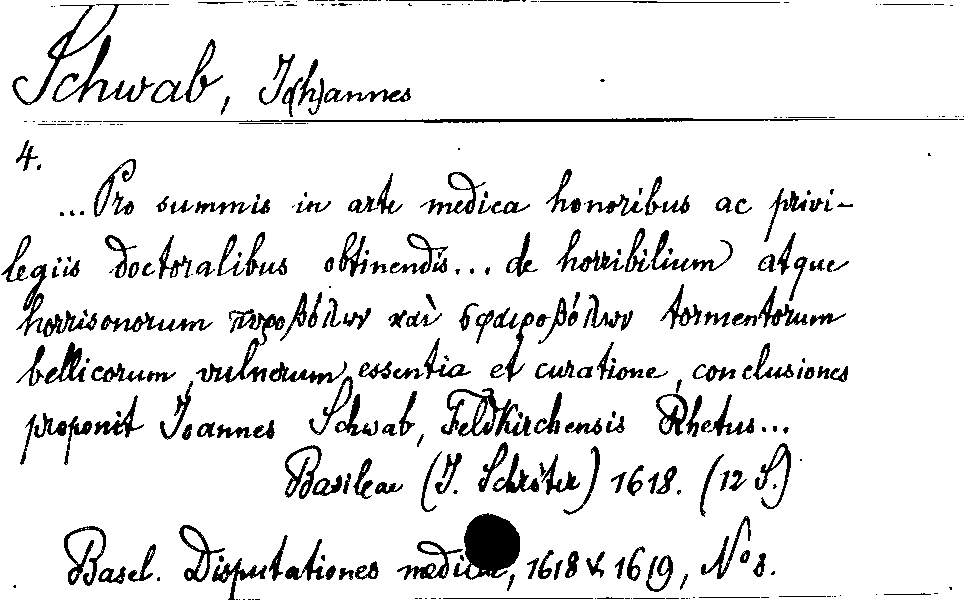 Schwab, Jo(h)annes
4.
...Pro summis in arte medica honoribus ac privi-
legiis doctoralibus obtinendis... de horribilium atque
horrisonorum πυροβόλων καὶ σφαιροβόλων tormentorum
bellicorum, vulnerum essentia et curatione, conclusiones
proponit Joannes Schwab, Feldkirchensis Rhetus...
Basileae (J. Schröter) 1618. (12 S.)
Basel. Disputationes medicae, 1618 & 1619, No 8.